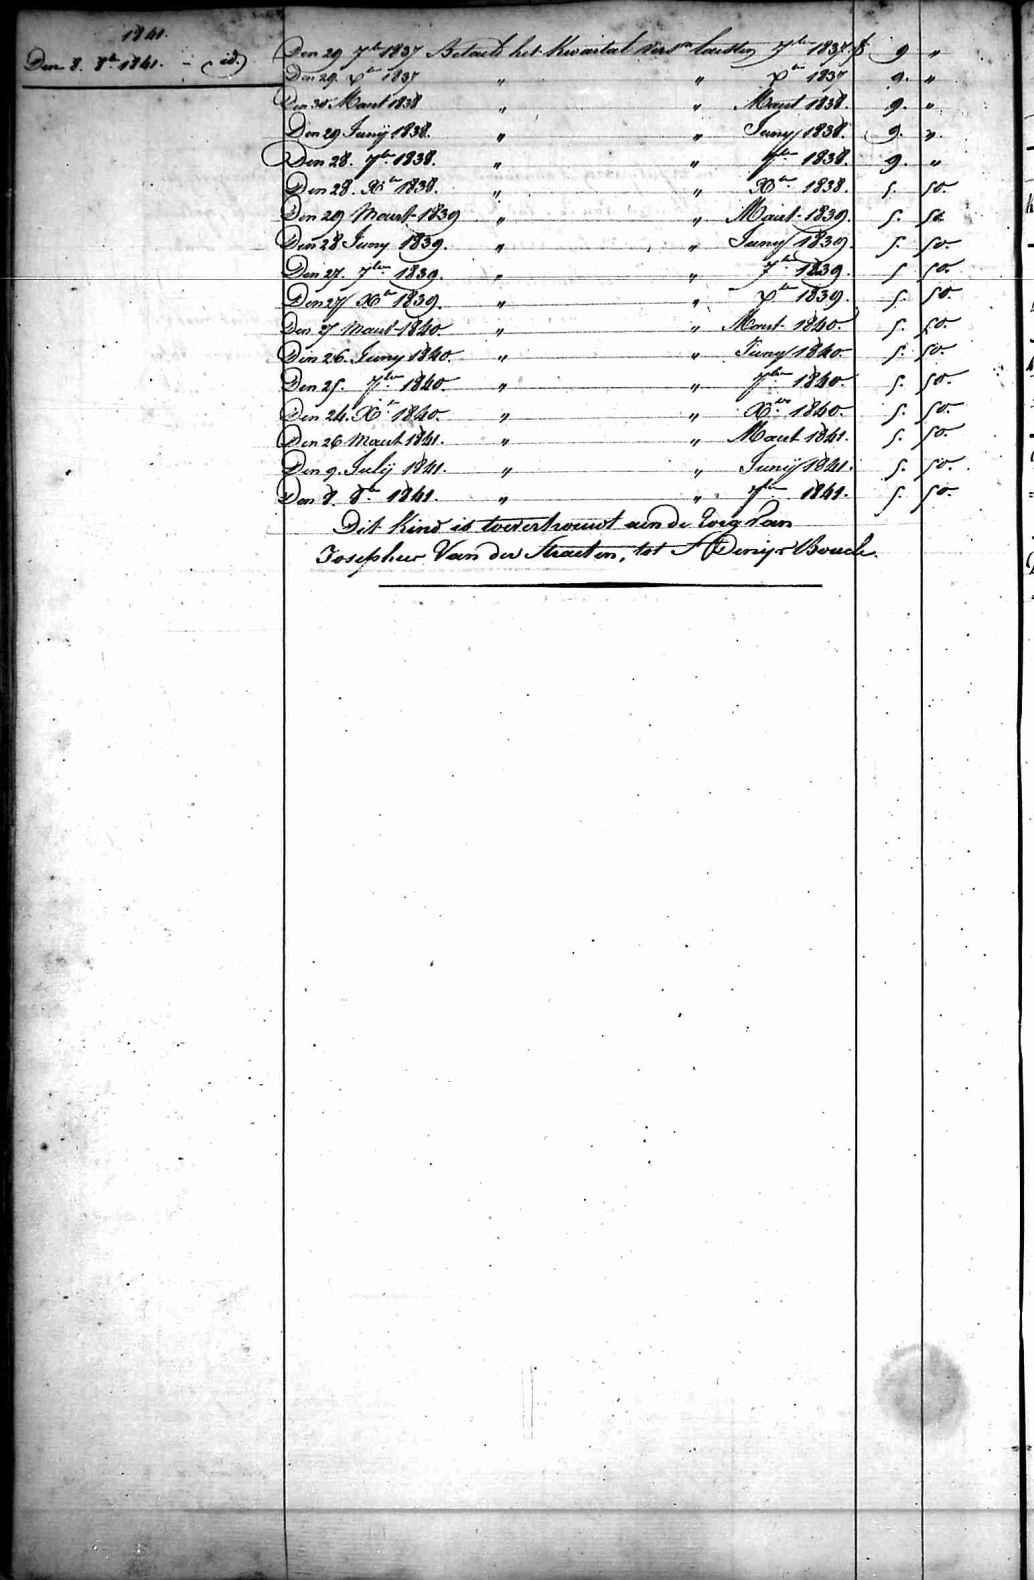 1841.
Den 8. 8bre 1841. - id.
Den 29 7bre 1837 Betaelt het Kwartael 7bre 1837. f 9 "
Den 29. Xbre 1837 " " Xbre 1837 9. "
Den 30 Maert 1838 " " Maert 1838. 9. "
Den 29 Junij 1838. " " Juny 1838. 9. "
Den 28. 7bre 1838. " " 7bre 1838. 9. "
Den 28. Xbre 1838. " " Xbre 1838. 5. 50.
Den 29 Maert 1839 " " Maert 1839. 5. 50
Den 28 Juny 1839. " " Juny 1839. 5. 50.
Den 27. 7bre 1839. " " 7bre 1839. 5 50.
Den 27 Xbre 1839. " " Xbre 1839. 5. 50.
Den 27 Maert 1840. " " Maert 1840. 5. 50.
Den 26. Juny 1840. " " Juny 1840. 5. 50.
Den 25. 7bre 1840. " " 7bre 1840. 5. 50.
Den 24. Xbre 1840. " " Xbre 1840. 5. 50.
Den 26 Maert 1841. " " Maert 1841. 5. 50.
Den 9. Julij 1841. " " Junij 1841. 5. 50.
Den 8. 8bre 1841. " " 7bre 1841. 5. 50.
Dit Kind is toevertrouwt aen de Zorg Van
Josephus Van der Straeten, tot St Denijs Boucle.